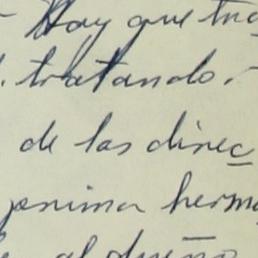 - Hay que
tratando.-
de las direc
prima herm
al dueño